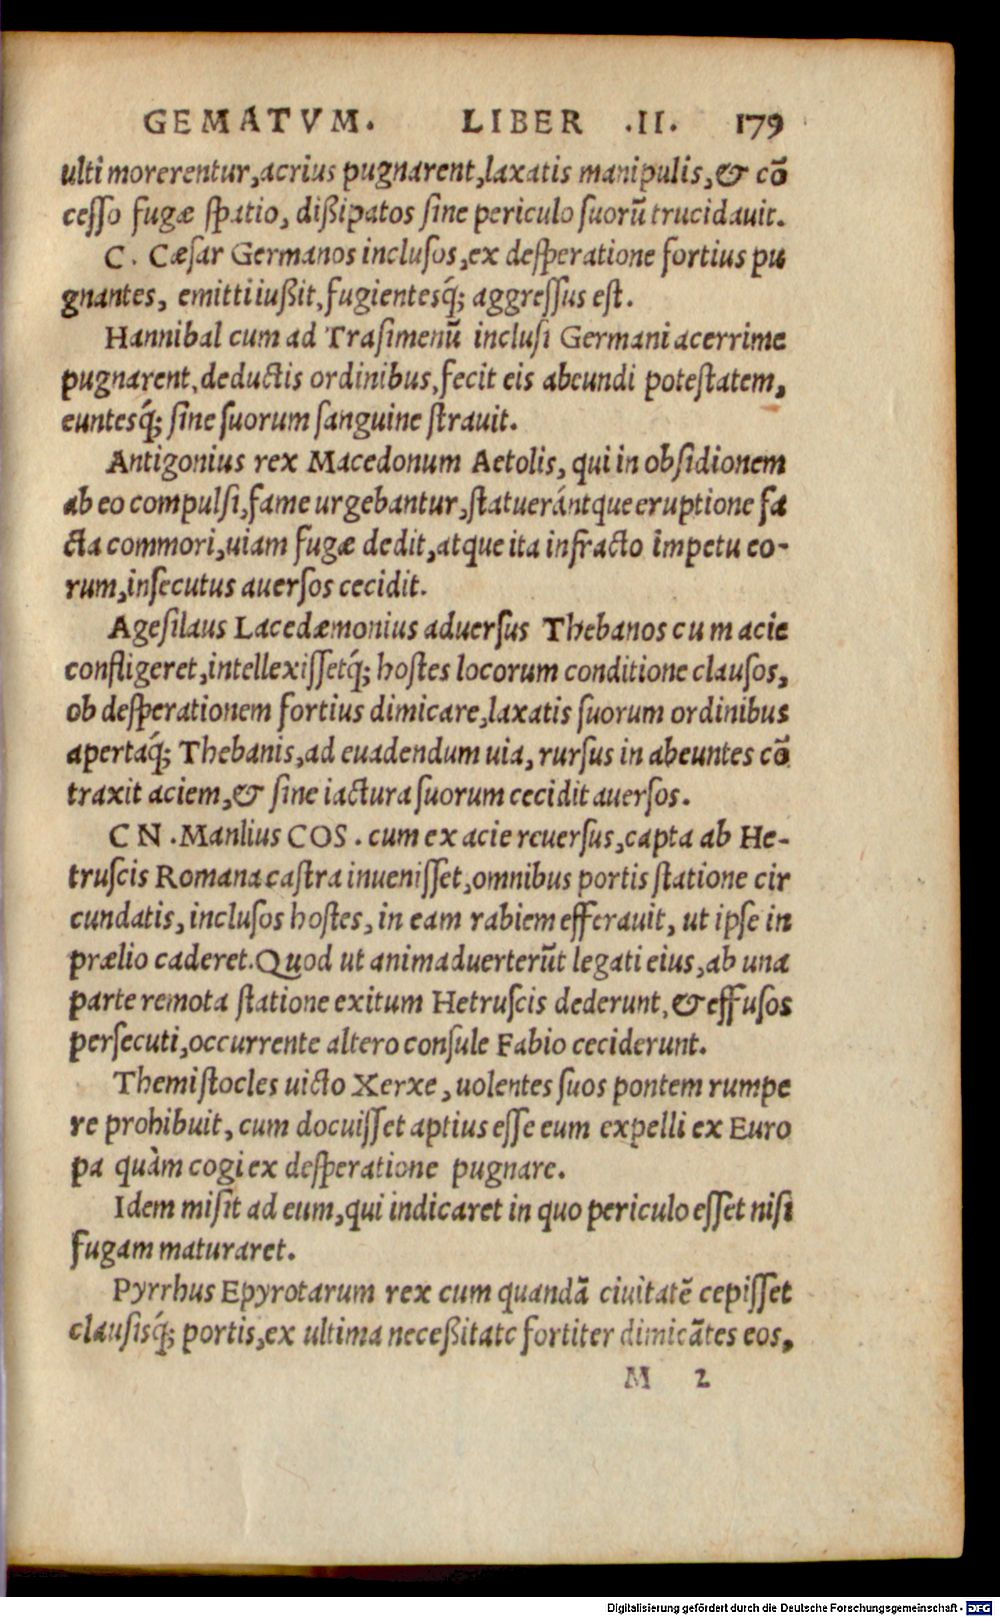 GEMATVM. LIBER .II. 179
ulti morerentur, acrius pugnarent, laxatis manipulis, & cō
cesso fugæ spatio, dißipatos sine periculo suorū trucidauit.
C. Cæsar Germanos inclusos, ex desperatione fortius pu
gnantes, emitti iußit, fugientesq́; aggressus est.
Hannibal cum ad Trasimenū inclusi Germani acerrime
pugnarent, deductis ordinibus, fecit eis abeundi potestatem,
euntesq́; sine suorum sanguine strauit.
Antigonius rex Macedonum Aetolis, qui in obsidionem
ab eo compulsi, fame urgebantur, statuerántque eruptione fa
cta commori, uiam fugæ dedit, atque ita infracto impetu eo-
rum, insecutus auersos cecidit.
Agesilaus Lacedæmonius aduersus Thebanos cum acie
confligeret, intellexissetq́; hostes locorum conditione clausos,
ob desperationem fortius dimicare, laxatis suorum ordinibus
apertaq́; Thebanis, ad euadendum uia, rursus in abeuntes cō
traxit aciem, & sine iactura suorum cecidit auersos.
CN. Manlius COS. cum ex acie reuersus, capta ab He-
truscis Romana castra inuenisset, omnibus portis statione cir
cundatis, inclusos hostes, in eam rabiem efferauit, ut ipse in
prælio caderet. Quod ut animaduerterūt legati eius, ab una
parte remota statione exitum Hetruscis dederunt, & effusos
persecuti, occurrente altero consule Fabio ceciderunt.
Themistocles uicto Xerxe, uolentes suos pontem rumpe
re prohibuit, cum docuisset aptius esse eum expelli ex Euro
pa quàm cogi ex desperatione pugnare.
Idem misit ad eum, qui indicaret in quo periculo esset nisi
fugam maturaret.
Pyrrhus Epyrotarum rex cum quandā ciuitatē cepisset
clausisq́; portis, ex ultima neceßitate fortiter dimicātes eos,
M 2
Digitalisierung gefördert durch die Deutsche Forschungsgemeinschaft - DFG